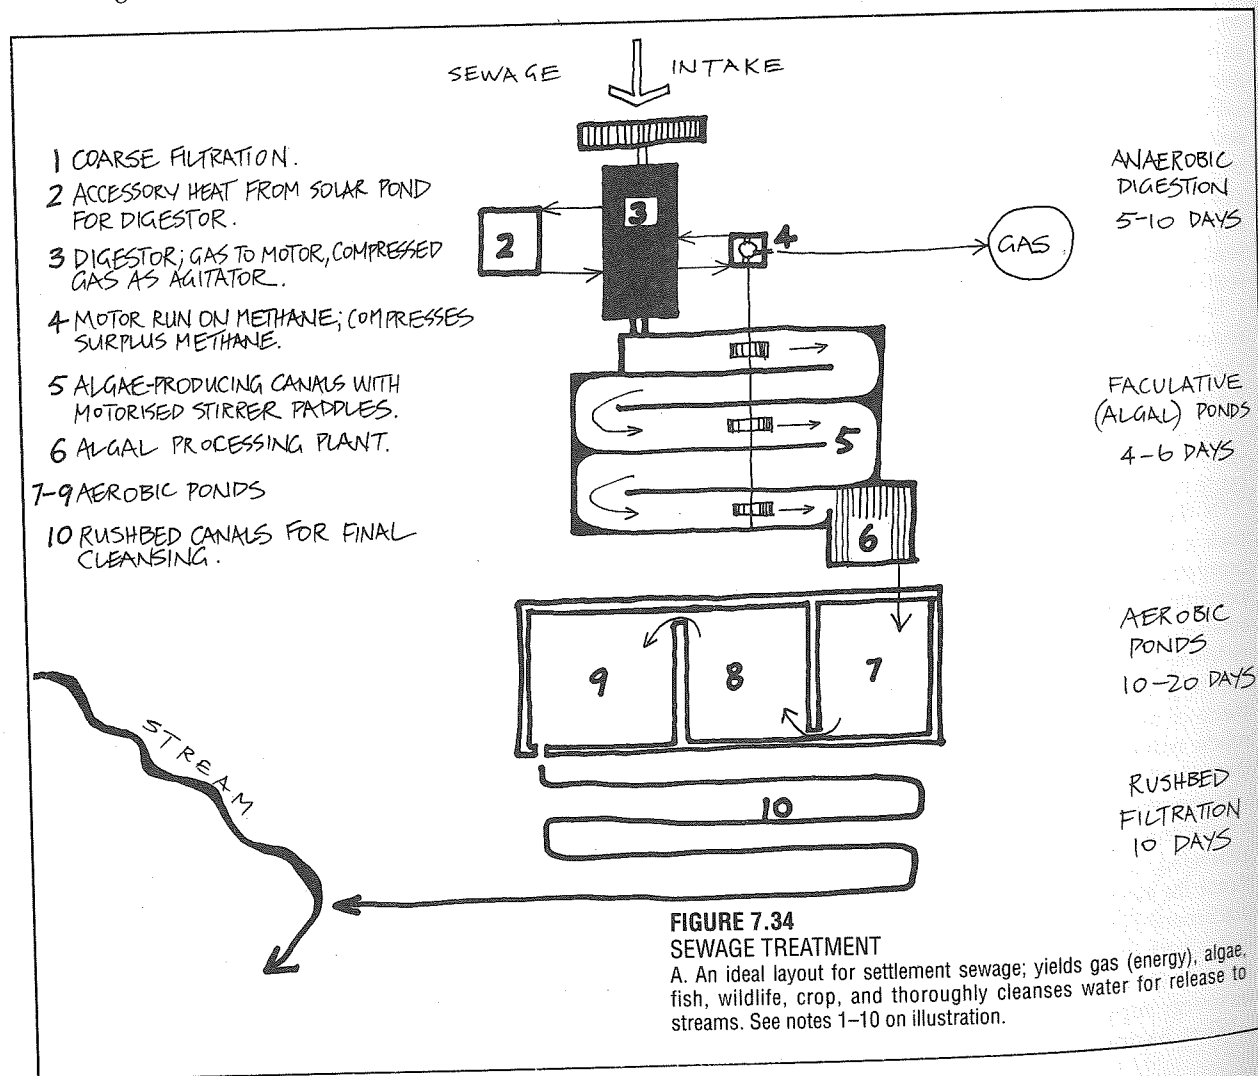 SEWAGE INTAKE
1 COARSE FILTRATION.
2 ACCESSORY HEAT FROM SOLAR POND
FOR DIGESTOR.
3 DIGESTOR; GAS TO MOTOR, COMPRESSED
GAS AS AGITATOR.
4 MOTOR RUN ON METHANE; COMPRESSES
SURPLUS METHANE.
5 ALGAE-PRODUCING CANALS WITH
MOTORISED STIRRER PADDLES.
6 ALGAL PROCESSING PLANT.
7-9 AEROBIC PONDS
10 RUSHBED CANALS FOR FINAL
CLEANSING.
3
2
4
GAS
5
6
9
8
7
10
STREAM
ANAEROBIC
DIGESTION
5-10 DAYS
FACULATIVE
(ALGAL) PONDS
4-6 DAYS
AEROBIC
PONDS
10-20 DAYS
RUSHBED
FILTRATION
10 DAYS
FIGURE 7.34
SEWAGE TREATMENT
A. An ideal layout for settlement sewage; yields gas (energy), algae,
fish, wildlife, crop, and thoroughly cleanses water for release to
streams. See notes 1–10 on illustration.